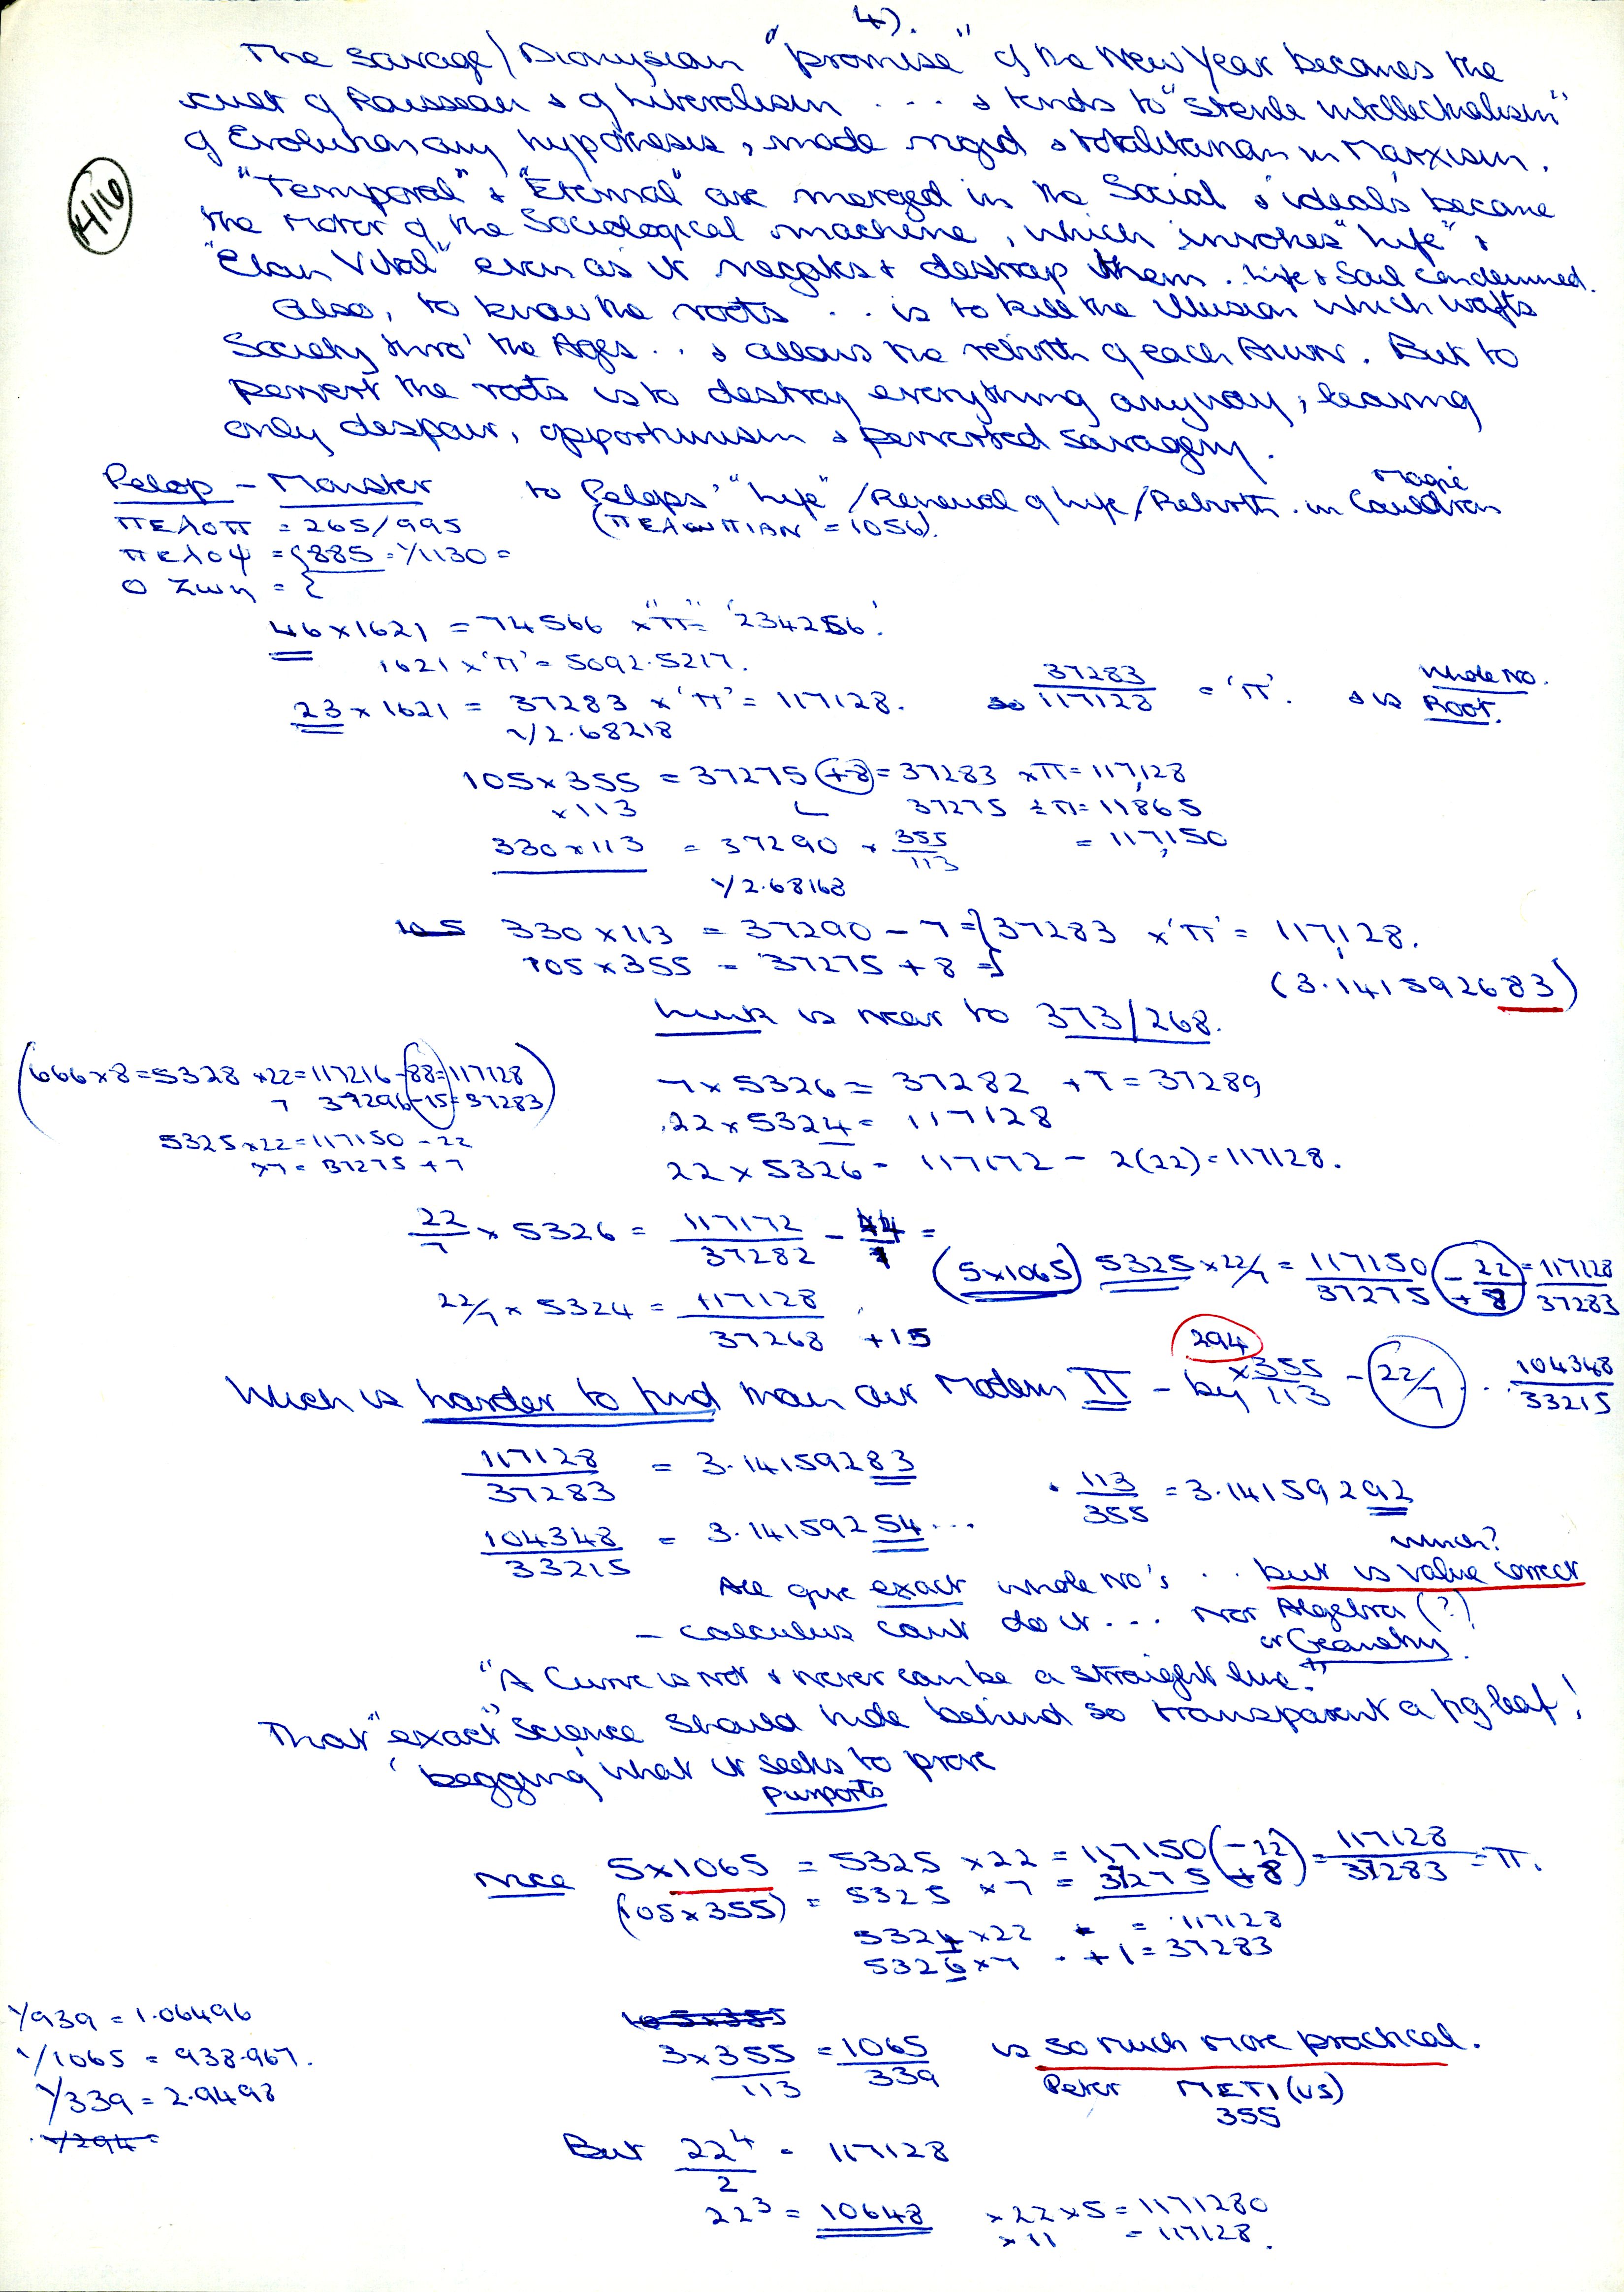 4).
The Savage/Dionysian "promise" of the New Year becomes the
of Rousseau & of Liberalism ... & tends to "Sterile intellectualism"
of Evolutionary hypothesis, made rigid & totalitarian in Marxism.
"Temporal" & "Eternal" are merged in the Social & ideals become
the motor of the Sociological machine, which invokes "Life" &
"Elan Vital" even as it negates & destroys them.. Life & Soul condemned.
H116
Also, to know the roots .. is to kill the illusion which wafts
Society thro' the Ages .. & allows the rebirth of each Aiwn. But to
pervert the roots is to destroy everything anyway, leaving
only despair, opportunism & perverted savagery.
Pelop - Monster to Pelops' "Life"/Renewal of Life/Rebirth. in Magic Cauldron
πελοπ = 265/995 (πελωπιαν = 1056).
πελοψ = {885 = 1/1130 =
ο Ζωη = {
46 x 1621 = 74566 x "π" = '234256'.
1621 x 'π' = 5092.5217.
23 x 1621 = 37283 x 'π' = 117128. so 37283/117128 = 'π'. & is Whole No. Root.
1/2.68218
105 x 355 = 37275 (+8) = 37283 x π = 117,128
x 113 37275 ÷ π = 11865
330 x 113 = 37290 x 355/113 = 117,150
1/2.68168
105 330 x 113 = 37290 - 7 = } 37283 x 'π' = 117,128.
105 x 355 = 37275 + 8 = }
(3.141592683)
Link is near to 373/268.
(666 x 8 = 5328 x 22 = 117216 - 88 = 117128
7 37296 - 15 = 37283)
5325 x 22 = 117150 - 22
x 7 = 37275 + 7
7 x 5326 = 37282 + 7 = 37289
22 x 5324 = 117128
22 x 5326 = 117172 - 2(22) = 117128.
22/7 x 5326 = 117172/37282 - 44/1 =
(5 x 1065) 5325 x 22/7 = 117150/37275 (- 22/+ 8) = 117128/37283
22/7 x 5324 = 117128/37268 + 15
Which is harder to find than our Modern π - by 294 x 355/113 - (22/7) .. 104348/33215
117128/37283 = 3.14159283 . 113/355 = 3.14159292
104348/33215 = 3.14159254...
All give exact whole No's .. but is value correct which?
- calculus can't do it... Nor Algebra (?)
or Geometry.
"A Curve is not & never can be a straight line."
That "exact" Science should hide behind so transparent a fig leaf!
'begging' what it seeks to prove
purports
Nice 5 x 1065 = 5325 x 22 = 117150 (- 22) = 117128/37283 = π.
(105 x 355) = 5325 x 7 = 37275 (+ 8)
5324 x 22 = 117128
5326 x 7 . + 1 = 37283
1/939 = 1.06496
1/1065 = 938.967.
1/339 = 2.9498
1/294 =
105 x 355
3 x 355/113 = 1065/339 is so much more practical.
Peter METI(us)
355
But 22⁴/2 = 117128
22³ = 10648 x 22 x 5 = 1171280
x 11 = 117128.